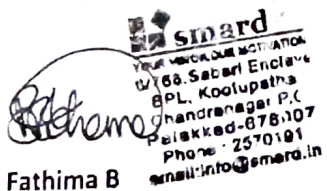 smard
YOUR
MOTIVATION
66, Sabari Enclave
BPL, Kootupatha
handranagar P.O
Palakkad-678007
Phone : 2570191
email:info@smard.in
Fathima B